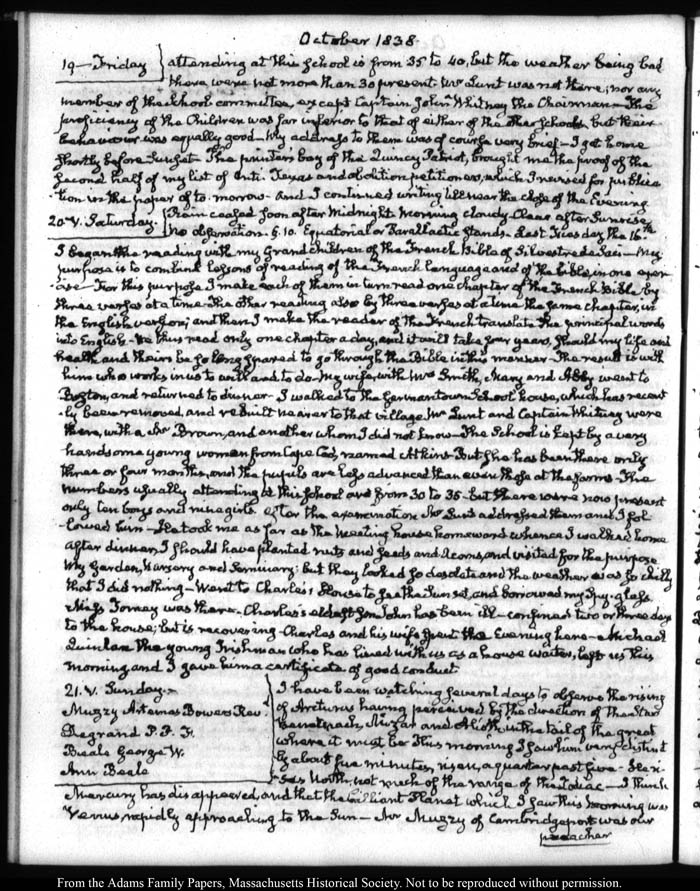 October 1838.
19— Friday attending at this School is from 35 to 40, but the weather being bad
there were not more than 30 present. Mr Lunt was not there; nor any
member of the School committee, except Captain John Whitney the Chairman— The
proficiency of the Children was far inferior to that of either of the other Schools, but their
behaviour was equally good— My address to them was of course very brief— I got home
shortly before Sunset— The printer's boy of the Quincy Patriot, brought me the proof of the
second half of my list of Anti-Texas and abolition petitioners, which I revised for publica
-tion in the paper of to-morrow. And I continued writing till near the close of the Evening
20. V. Saturday. Rain ceased soon after Midnight. Morning cloudy. Clear after Sunrise
No observation. 6.10. Equatorial or Parallactic Stands. Last Tuesday the 16th.
I began the reading with my Grandchildren of the French Bible of Silvestre de Saci— My
purpose is to combine lessons of reading of the French language and of the bible, in one exer
-cise— For this purpose I make each of them in turn read one chapter of the French Bible by
three verses at a time— the other reading also by three verses at a time the same chapter, in
the English version; and then I make the reader of the French translate the principal words
into English— We thus read only one chapter a day, and it will take four years, should my life and
health and theirs be so long spared to go through the Bible in this manner— The result is with
him who works in us to will and to do— My wife, with Mrs Smith, Mary and Abby went to
Boston, and returned to dinner— I walked to the Germantown School house, which has recent
-ly been removed, and rebuilt nearer to that village. Mr Lunt and Captain Whitney were
there, with a Mr Brown, and another whom I did not know— The School is kept by a very
handsome young woman from Cape Cod, named Atkins— But she has been there only
three or four months, and the pupils are less advanced than even those at the farms— The
numbers usually attending at this School are from 30 to 35— but there were now present
only ten boys and nine girls. After the examination Mr Lunt addressed them and I fol
-lowed him— He took me as far as the Meeting house homeward whence I walked home
after dinner, I should have planted nuts and seeds and acorns, and visited for the purpose
My Garden, Nursery and Seminary: but they looked so desolate and the weather was so chilly
that I did nothing— Went to Charles's House to see the Sun set, and borrowed my Spy-glass.
Miss Torrey was there— Charles's eldest Son John has been ill— confined two or three days
to the house; but is recovering— Charles and his wife spent the Evening here— Michael
Quinlan the young Irishman who has lived with us as a house waiter, left us this
morning, and I gave him a certificate of good conduct
21. V. Sunday.
Muzzy Artemas Bowers Rev.
Degrand P. P. F.
Beale George W.
Ann Beale
I have been watching several days to observe the rising
of Arcturus having perceived by the direction of the Stars
Benetnasch, Mizar and Alioth, in the tail of the great
where it must be. This morning I saw him very distinct
by about five minutes, risen, a quarter past five— He ri-
ses North, not much of the range of the Zodiac— I think
Mercury has disappeared, and that the brilliant Planet which I saw this morning was
Venus, rapidly approaching to the Sun— Mr Muzzy of Cambridgeport was our
preacher
From the Adams Family Papers, Massachusetts Historical Society. Not to be reproduced without permission.